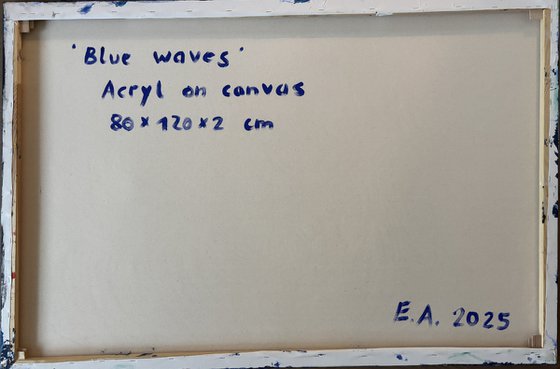 'Blue waves'
Acryl on canvas
80 x 120 x 2 cm
E.A. 2025